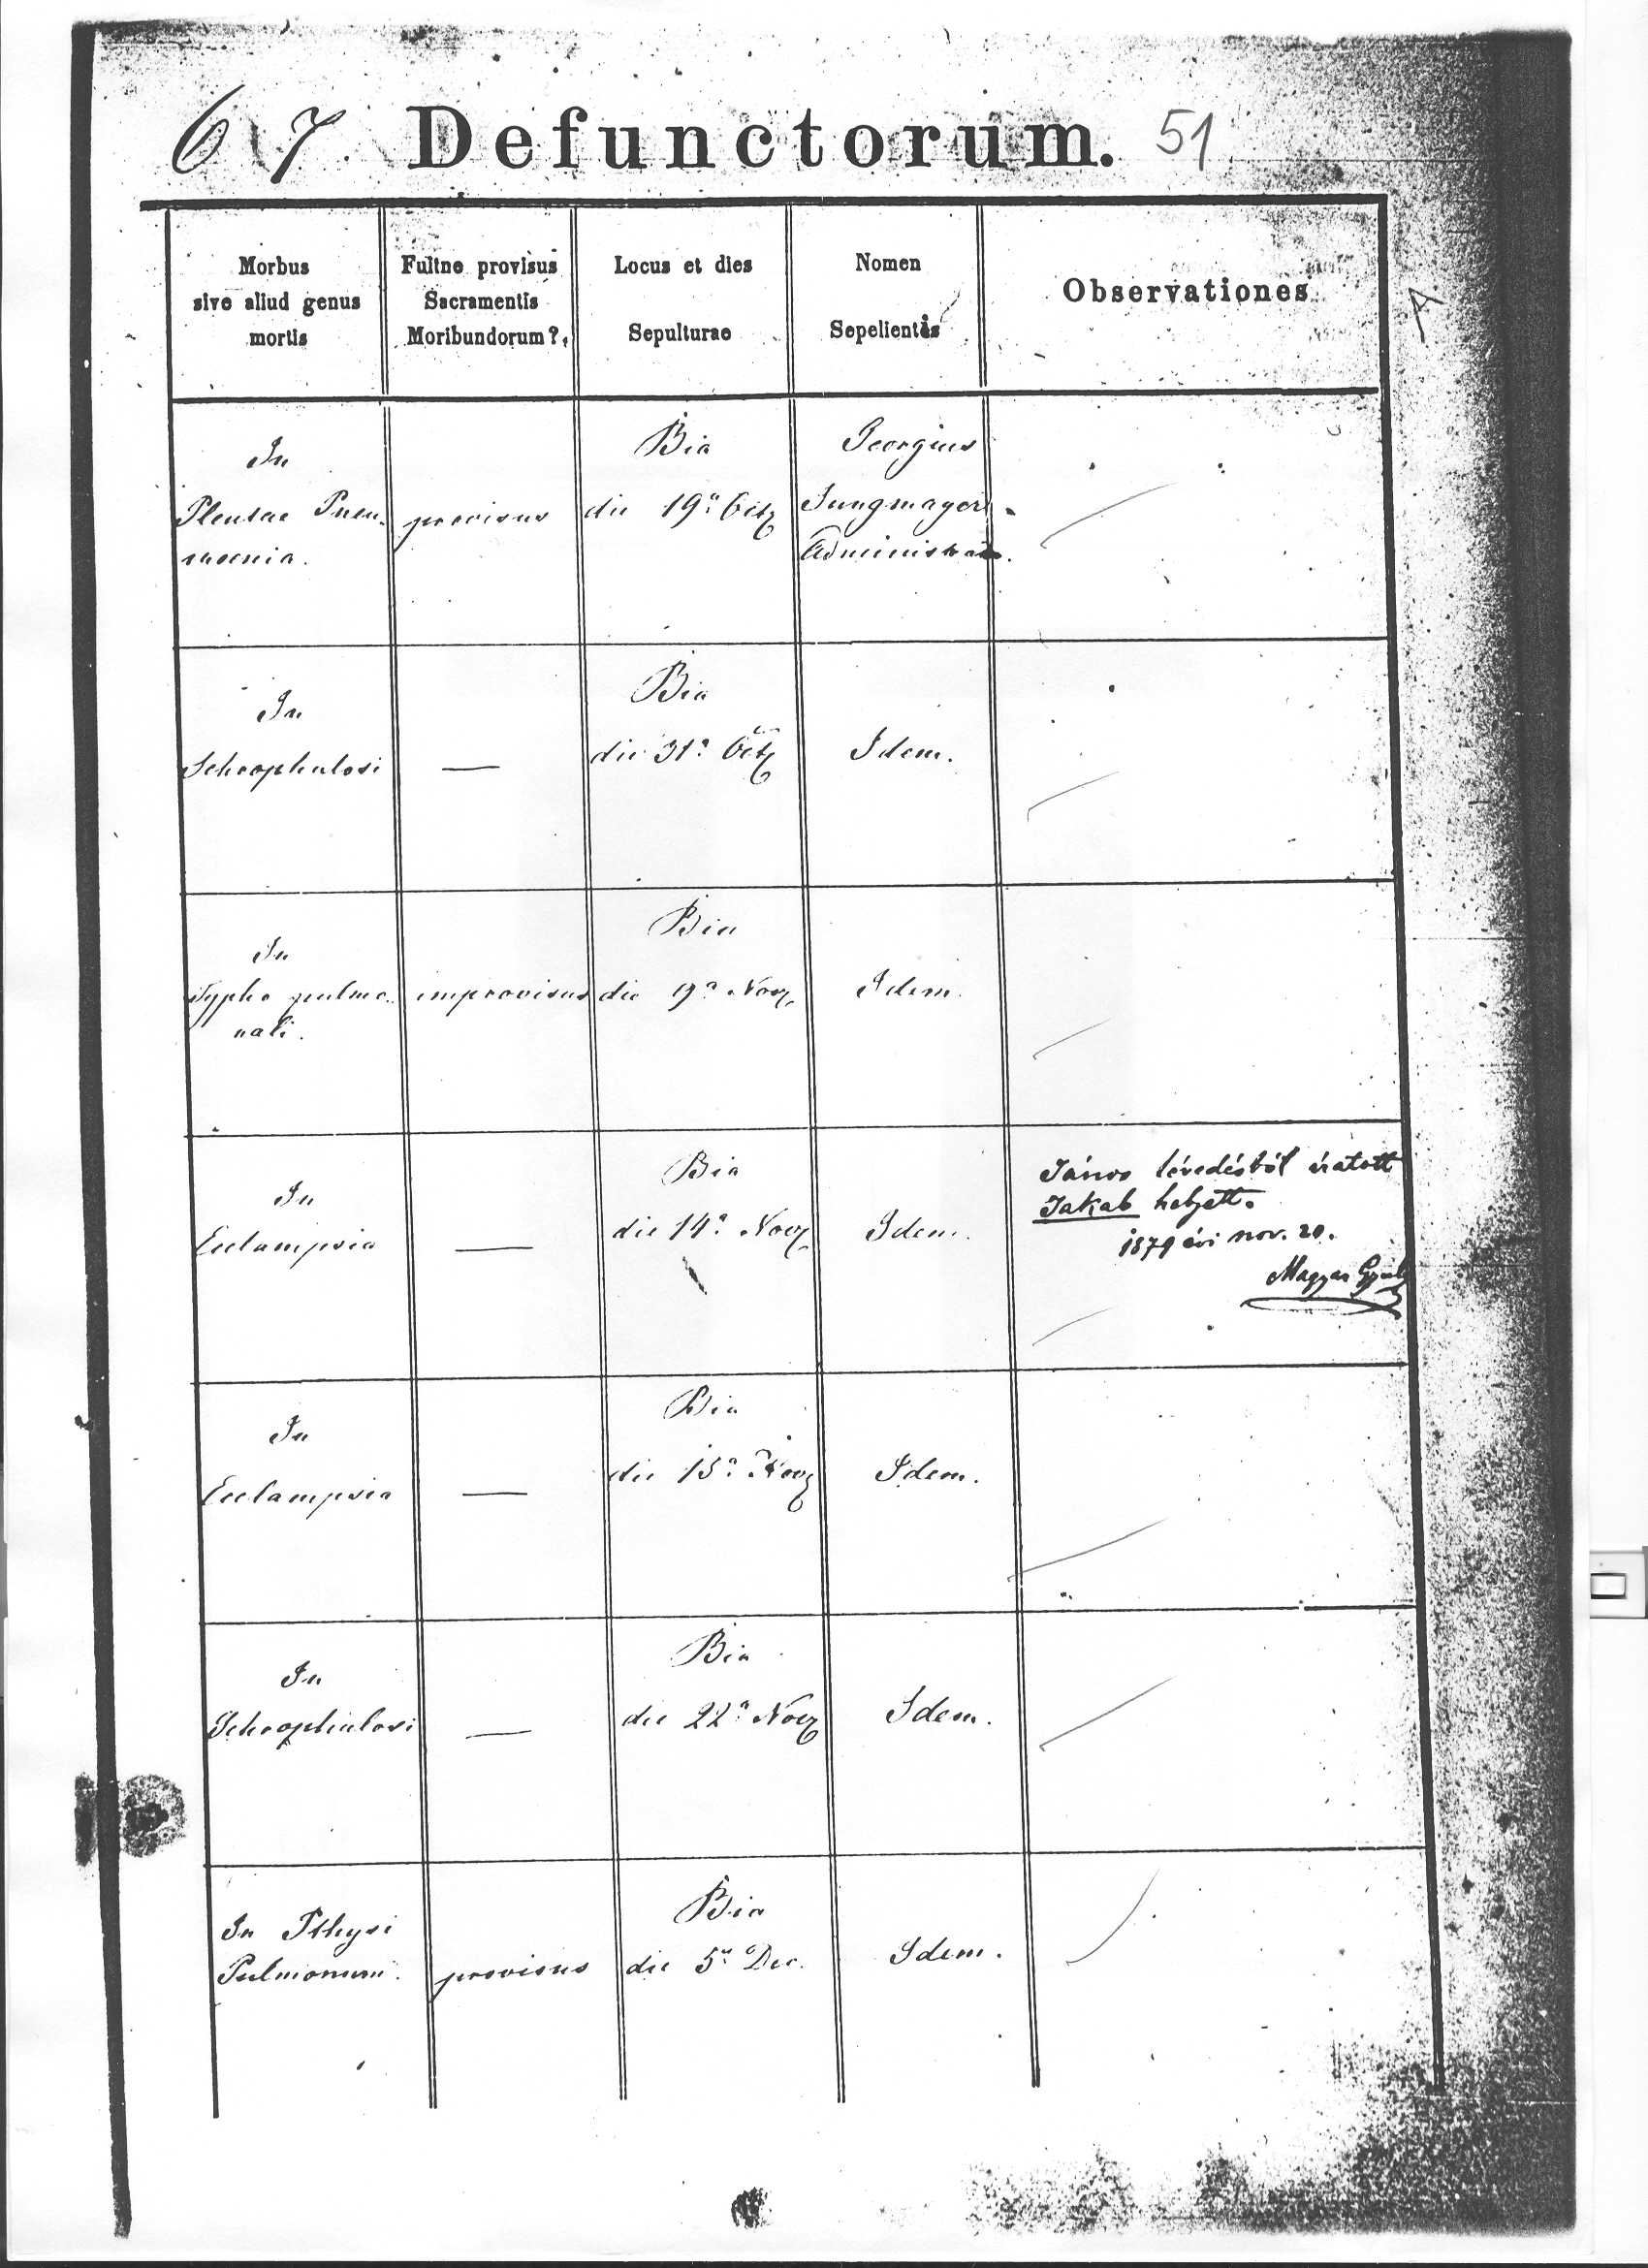 67 Defunctorum. 51
Morbus
sive aliud genus
mortis
Fuitne provisus
Sacramentis
Moribundorum?
Locus et dies
Sepulturae
Nomen
Sepelientis
Observationes
A
In
Pleutae Pneu-
moenia.
provisus
Bia
die 19a Octb
Georgius
Jungmayer
Administrat.
In
Schrophulosi
—
Bia
die 31a Octb
Idem.
In
Typho pulmo-
nali.
improvisus
Bia
die 9a Nov
Idem.
In
Eclampsia
—
Bia
die 14a Nov
Idem.
János tévedésből íratott
Jakab helyett.
1879 évi nov. 20.
Magyar
In
Eclampsia
—
Bia
die 15a Nov
Idem.
In
Schrophulosi
—
Bia
die 22a Nov
Idem.
In Pthysi
Pulmonum.
provisus
Bia
die 5a Dec.
Idem.